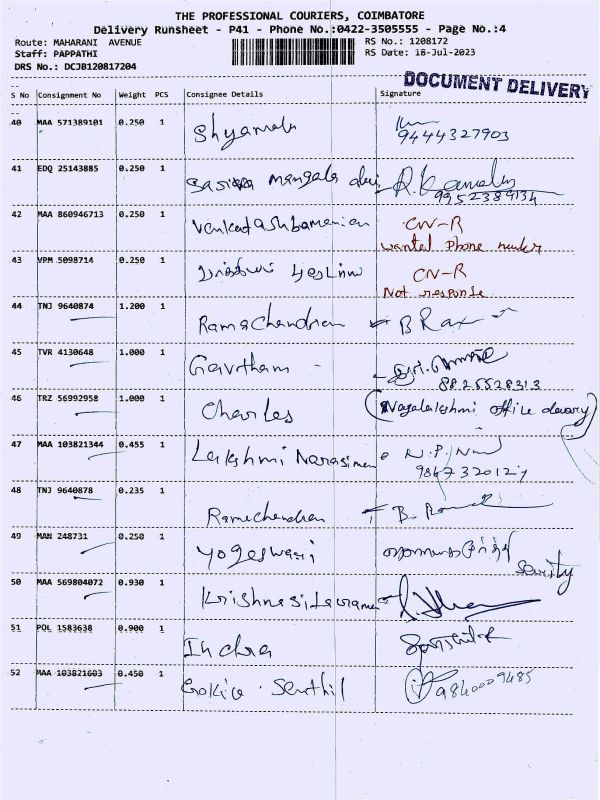 THE PROFESSIONAL COURIERS, COIMBATORE
Delivery Runsheet - P41 - Phone No.:0422-3505555 - Page No.:4
Route: MAHARANI AVENUE RS No.: 1208172
Staff: PAPPATHI RS Date: 18-Jul-2023
DRS No.: DCJB120817204
DOCUMENT DELIVERY
S No Consignment No Weight PCS Consignee Details Signature
40 MAA 571389101 0.250 1 Shyamala
9444327903
41 EDQ 25143885 0.250 1 mangala devi
9952389134
42 MAA 860946713 0.250 1 Venkatasubamanian CN-R
wanted Phone number
43 VPM 5098714 0.250 1 CN-R
Not response
44 TNJ 9640874 1.200 1 Ramachandran
45 TVR 4130648 1.000 1 Gavtham
8825528313
46 TRZ 56992958 1.000 1 Charles Nagalakshmi office
47 MAA 103821344 0.455 1 Lakshmi Narasiman
48 TNJ 9640878 0.235 1 Ramachandran
49 MAN 248731 0.250 1 Yogeswari
50 MAA 569804072 0.930 1
51 POL 1583638 0.900 1 Indra
52 MAA 103821603 0.450 1 Senthil 9840009485